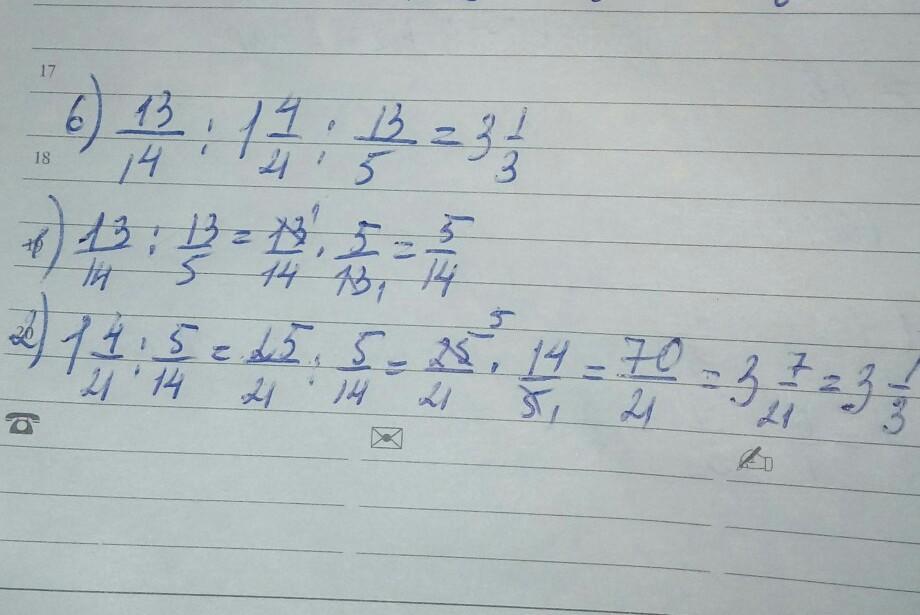 17
б) 13/14 : 1 4/21 : 13/5 = 3 1/3
18
1) 13/14 : 13/5 = 13/14 · 5/13 = 5/14
2) 1 4/21 : 5/14 = 25/21 : 5/14 = 25/21 · 14/5 = 70/21 = 3 7/21 = 3 1/3